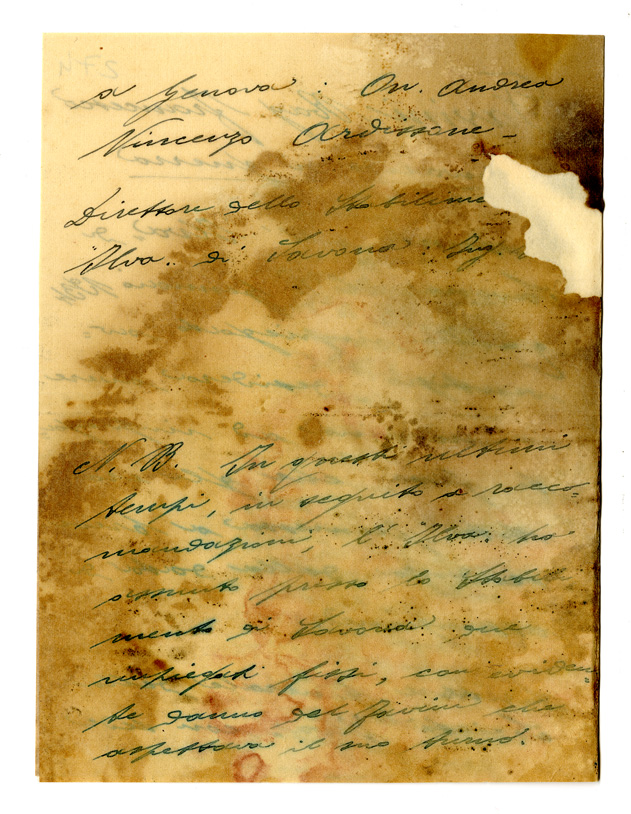 a Genova: On. Andrea
Vincenzo Ardissone -
Direttore dello Stabilime
"Ilva" di Savona: Ing.
N. B. In questi ultimi
tempi, in seguito a racco-
mandazioni, l'"Ilva" ha
assunto presso lo Stabili
mento di Savona due
impiegati fissi, con eviden
te danno del Favini che
aspettava il suo turno.